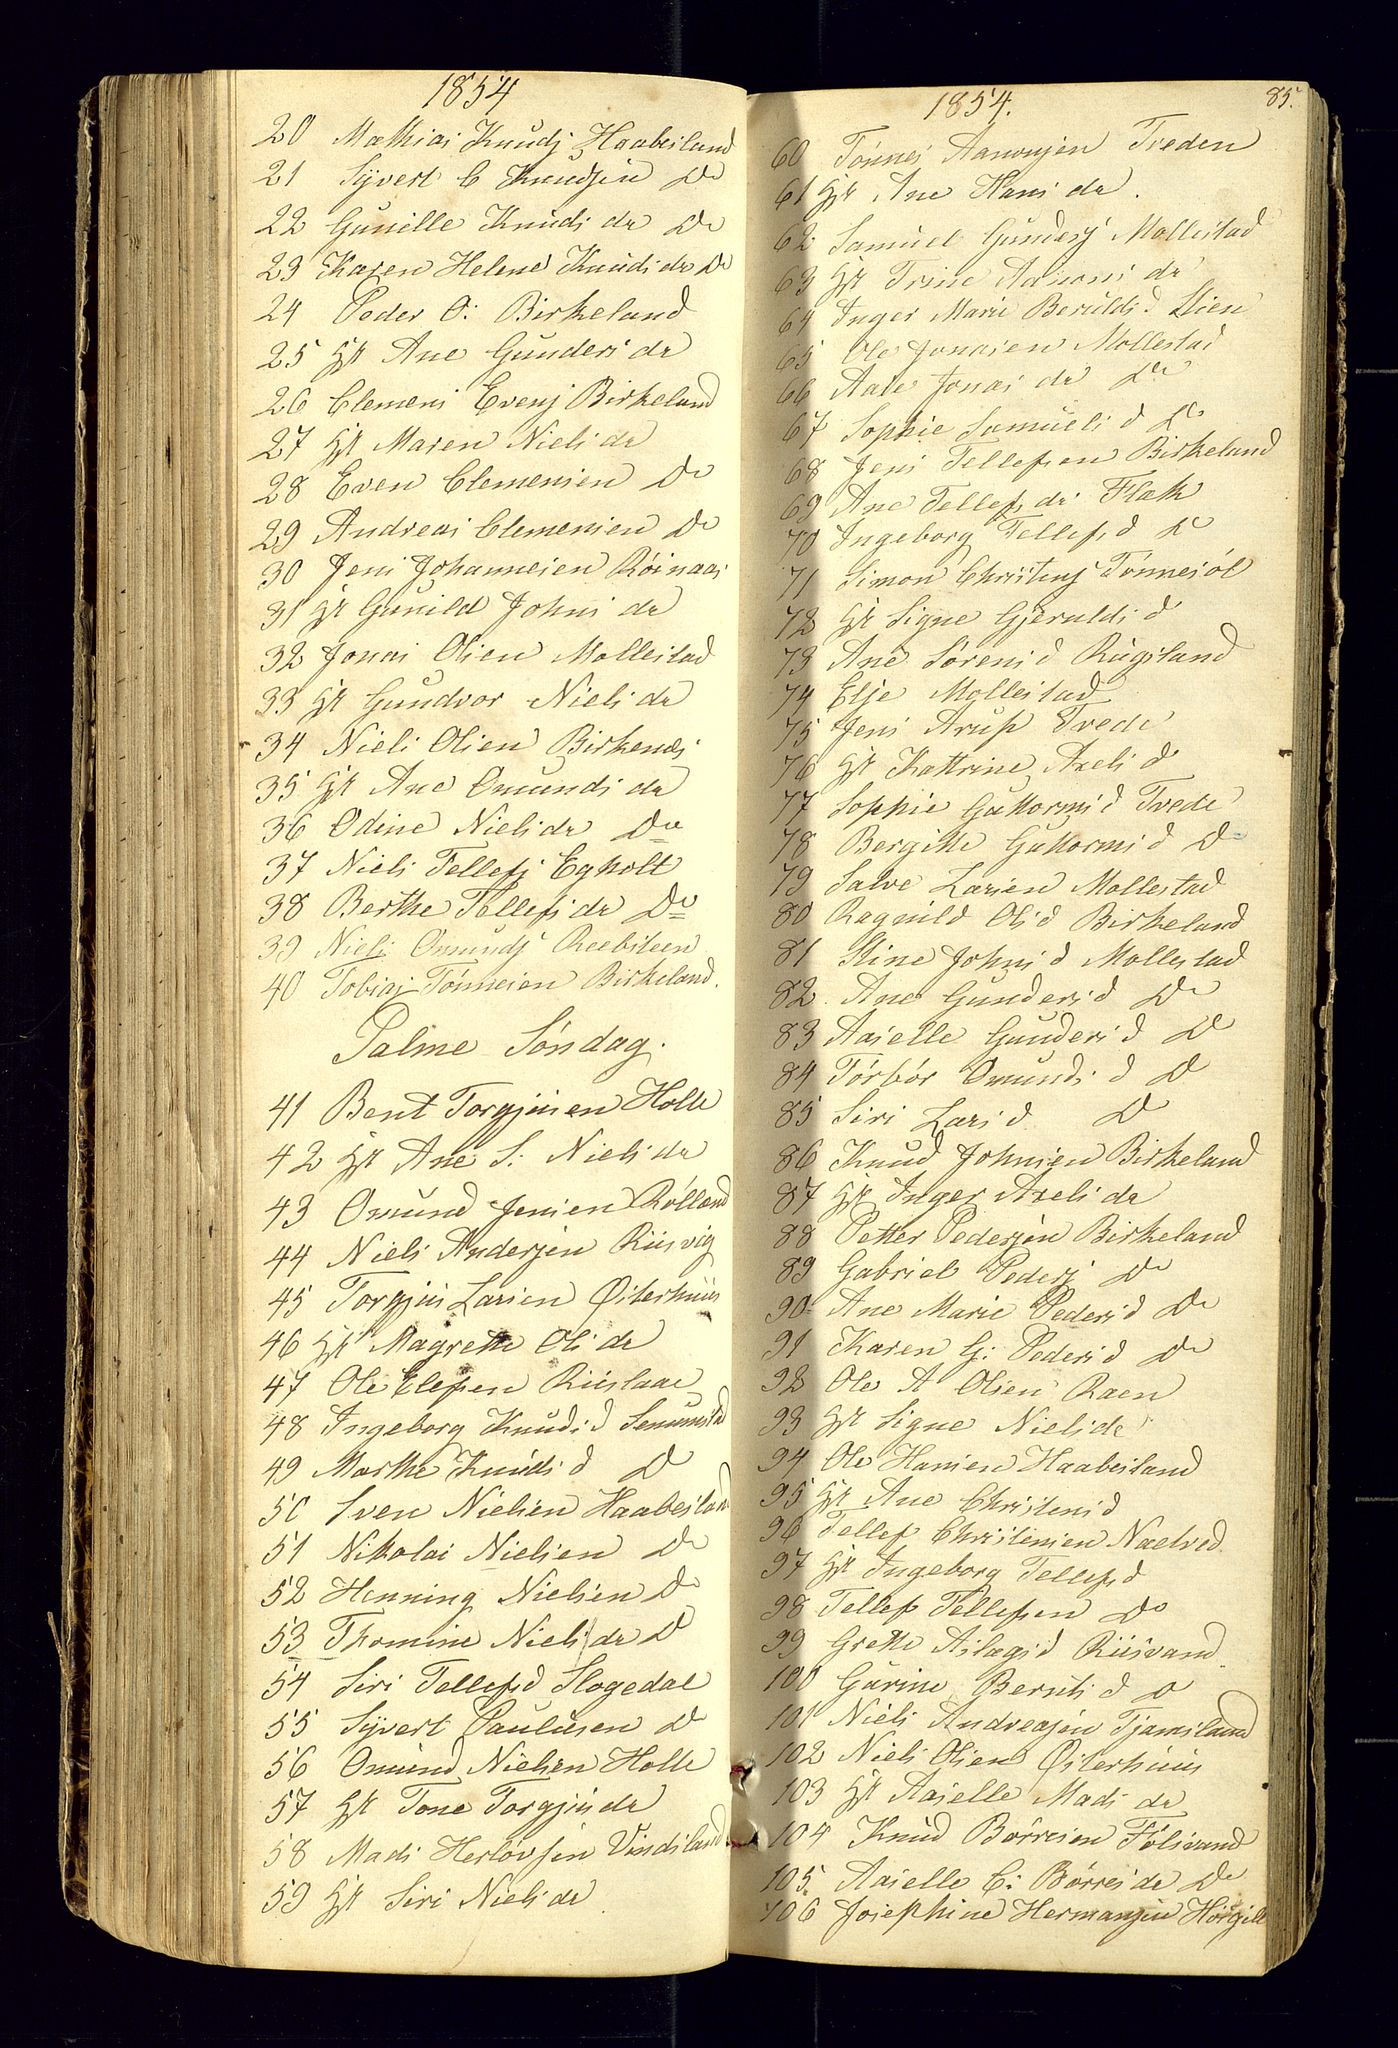 1854
20 Mathias Knuds Haabesland
21 Syvert C Knudsen Do
22 Gunille Knuds dr Do
23 Karen Helene Knuds dr Do
24 Peder O: Birkeland
25 Hr Ane Gunders dr
26 Clemens Evens Birkeland
27 Hr Maren Niels dr
28 Even Clemensen Do
29 Andreas Clemensen Do
30 Jens Johannesen Röisaas
31 Hr Gunild Johns dr
32 Jonas Olsen Mollestad
33 Hr Gundvor Niels dr
34 Niels Olsen Birkenes
35 Hr Ane Omunds dr
36 Odine Niels dr Do
37 Niels Tellefs Egholt
38 Berthe Tellefs dr Do
39 Niels Omunds Reebsteen
40 Tobias Tönnesen Birkeland.
Palme Söndag.
41 Bent Torgjusen Holle
42 Hr Ane S: Niels dr
43 Omund Jensen Rölland
44 Niels Andersen Riisvig
45 Torgjus Larsen Østerhuus
46 Hr Magrethe Ols dr
47 Ole Elefsen Riislaae
48 Ingeborg Knuds d Senumstad
49 Marthe Knuds d Do
50 Sven Nielsen Haabesland
51 Nikolai Nielsen Do
52 Henning Nielsen Do
53 Thomine Niels dr Do
54 Siri Tellefs d Slogedal
55 Syvert Paulusen Do
56 Omund Nielsen Holle
57 Hr Tone Torgjus dr
58 Mads Herlovsen Vindsland
59 Hr Siri Niels dr
1854. 85.
60 Tönnes Aanonsen Treden
61 Hr Ane Hans dr.
62 Samuel Gunders Mollestad
63 Hr Trine Aanons dr
64 Inger Marie Berulds d Stien
65 Ole Jonasen Mollestad
66 Aase Jonas dr Do
67 Sophie Samuels d Do
68 Jens Tellefsen Birkeland
69 Ane Tellefs dr Flak
70 Ingeborg Tellefs d Do
71 Simon Christens Tönnesöl
72 Hr Signe Gjerulds d
73 Ane Sörens d Rugsland
74 Elje Mollestad
75 Jens Arup Tvede
76 Hr Kattrine Axels d
77 Sophie Guttorms d Tvede
78 Bergitte Guttorms d Do
79 Salve Larsen Mollestad
80 Ragnild Ols d Birkeland
81 Stine Johns d Mollestad
82 Ane Gunders d Do
83 Aaselle Gunders d Do
84 Törbör Omunds d Do
85 Siri Lars d Do
86 Knud Johnsen Birkeland
87 Hr Inger Axels dr
88 Petter Pedersen Birkeland
89 Gabriel Peders Do
90 Ane Marie Peders d Do
91 Karen G: Peders d Do
92 Ole A Olsen Raen
93 Hr Signe Niels dr
94 Ole Hansen Haabesland
95 Hr Ane Christens d
96 Tellef Christensen Naelved
97 Hr Ingeborg Tellefs d
98 Tellef Tellefsen Do
99 Grethe Aslags d Riisvand
100 Gurine Bernts d Do
101 Niels Andreasen Tjamsland
102 Niels Olsen Østerhuus
103 Hr Aaselle Mads dr
104 Knud Börresen Fölsvand
105 Aaselle C: Börres dr Do
106 Josephine Hermansen